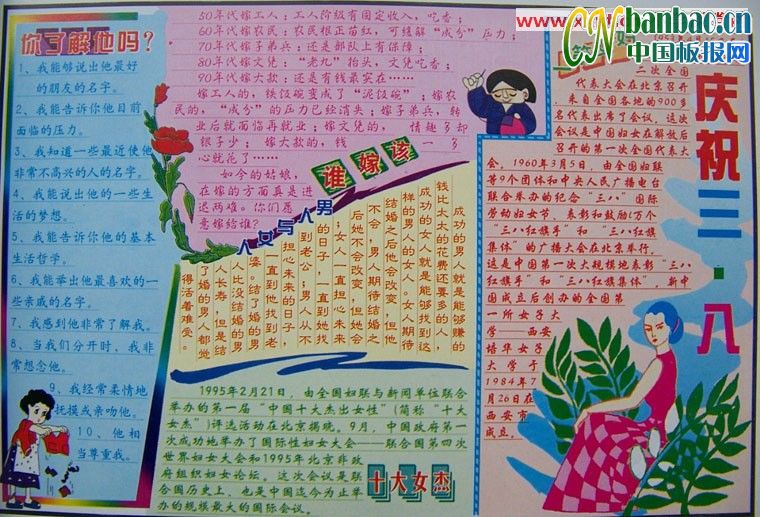 你了解他吗?
1、我能够说出他最好
的朋友的名字。
2、我能告诉你他目前
面临的压力。
3、我知道一些最近使他
非常不高兴的人的名字。
4、我能说出他的一些生
活的梦想。
5、我能告诉你他的基本
生活哲学。
6、我能举出他最喜欢的一
些亲戚的名字。
7、我感到他非常了解我。
8、当我们分开时、我非
常想念他。
9、我经常柔情地
抚摸或亲吻他。
10、他相
当尊重我。
50年代嫁工人:工人阶级有固定收入,吃香;
60年代嫁农民:农民根正苗红,可缓解“成分”压力;
70年代嫁子弟兵:还是部队上有保障;
80年代嫁文凭:“老九”抬头,文凭吃香;
90年代嫁大款:还是有钱最实在……
嫁工人的,铁饭碗变成了“泥饭碗”;嫁农
民的,“成分”的压力已经消失;嫁子弟兵,转
业后就面临再就业;嫁文凭的,情趣多却
银子少;嫁大款的,钱一多
心就花了……
如今的姑娘,
在嫁的方面真是进
退两难。你们愿
意嫁给谁?
谁嫁该
男人与女人
成功的男人就是能够赚的
钱比太太的花费还要多的人,
成功的女人就是能够找到这
样的男人的女人。女人期待
结婚之后他会改变,但他
不会;男人期待结婚之
后她不会改变,但她
会;女人一直担心未来
的日子,一直到她找
到老公;男人从不
担心未来的日子,
一直到他找到老
婆。结了婚的男
人比没结婚的男
人长寿,但是结
了婚的男人都觉
得活着难受。
1995年2月21日,由全国妇联与新闻单位联合
举办的第一届“中国十大杰出女性”(简称“十大
女杰”)评选活动在北京揭晓。9月,中国政府第一
次成功地举办了国际性妇女大会——联合国第四次
世界妇女大会和1995年北京非政
府组织妇女论坛。这次会议是联
合国历史上,也是中国迄今为止举
办的规模最大的国际会议。
十大女杰
二次全国
代表大会在北京召开
,来自全国各地的900多
名代表出席了会议,这次
会议是中国妇女在解放后
召开的第一次全国代表大
会。1960年3月5日,由全国妇联
等9个团体和中央人民广播电台
联合举办的纪念“三八”国际
劳动妇女节、表彰和鼓励6万个
“三八红旗手”和“三八红旗
集体”的广播大会在北京举行。
这是中国第一次大规模地表彰“三八
红旗手”和“三八红旗集体”新中
国成立后创办的全国第
一所女子大
学——西安
培华女子
大学于
1984年7
月26日在
西安市
成立。
庆祝三·八
CNbanbao.cn
中国板报网